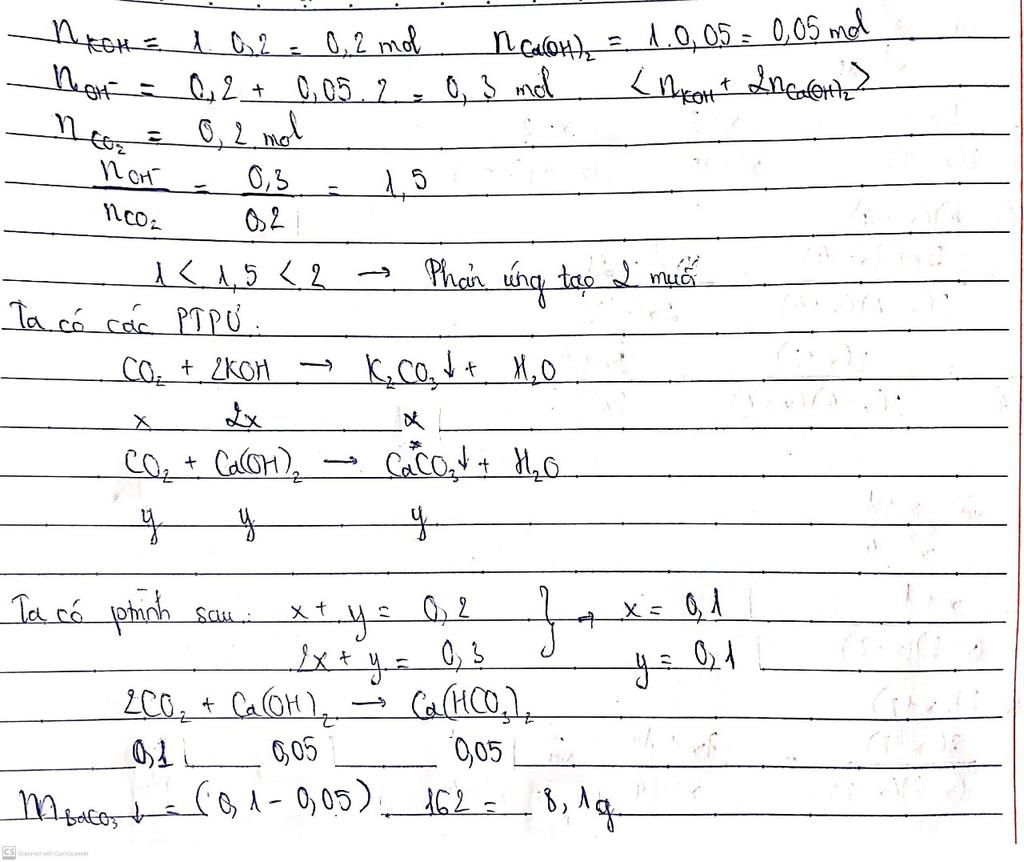 n KOH = 1. 0,2 = 0,2 mol n Ca(OH)₂ = 1.0,05 = 0,05 mol
n OH⁻ = 0,2 + 0,05.2 = 0,3 mol <n KOH + 2n Ca(OH)₂>
n CO₂ = 0,2 mol
n OH⁻ / n CO₂ = 0,3 / 0,2 = 1,5
1 < 1,5 < 2 → Phản ứng tạo 2 muối
Ta có các PTPƯ.
CO₂ + 2KOH → K₂CO₃↓ + H₂O
x 2x x
CO₂ + Ca(OH)₂ → CaCO₃↓ + H₂O
y y y
Ta có ptrình sau: x + y = 0,2 } → x = 0,1
2x + y = 0,3 y = 0,1
2CO₂ + Ca(OH)₂ → Ca(HCO₃)₂
0,1 0,05 0,05
m BaCO₃↓ = (0,1 - 0,05). 162 = 8,1g
CS Scanned with CamScanner